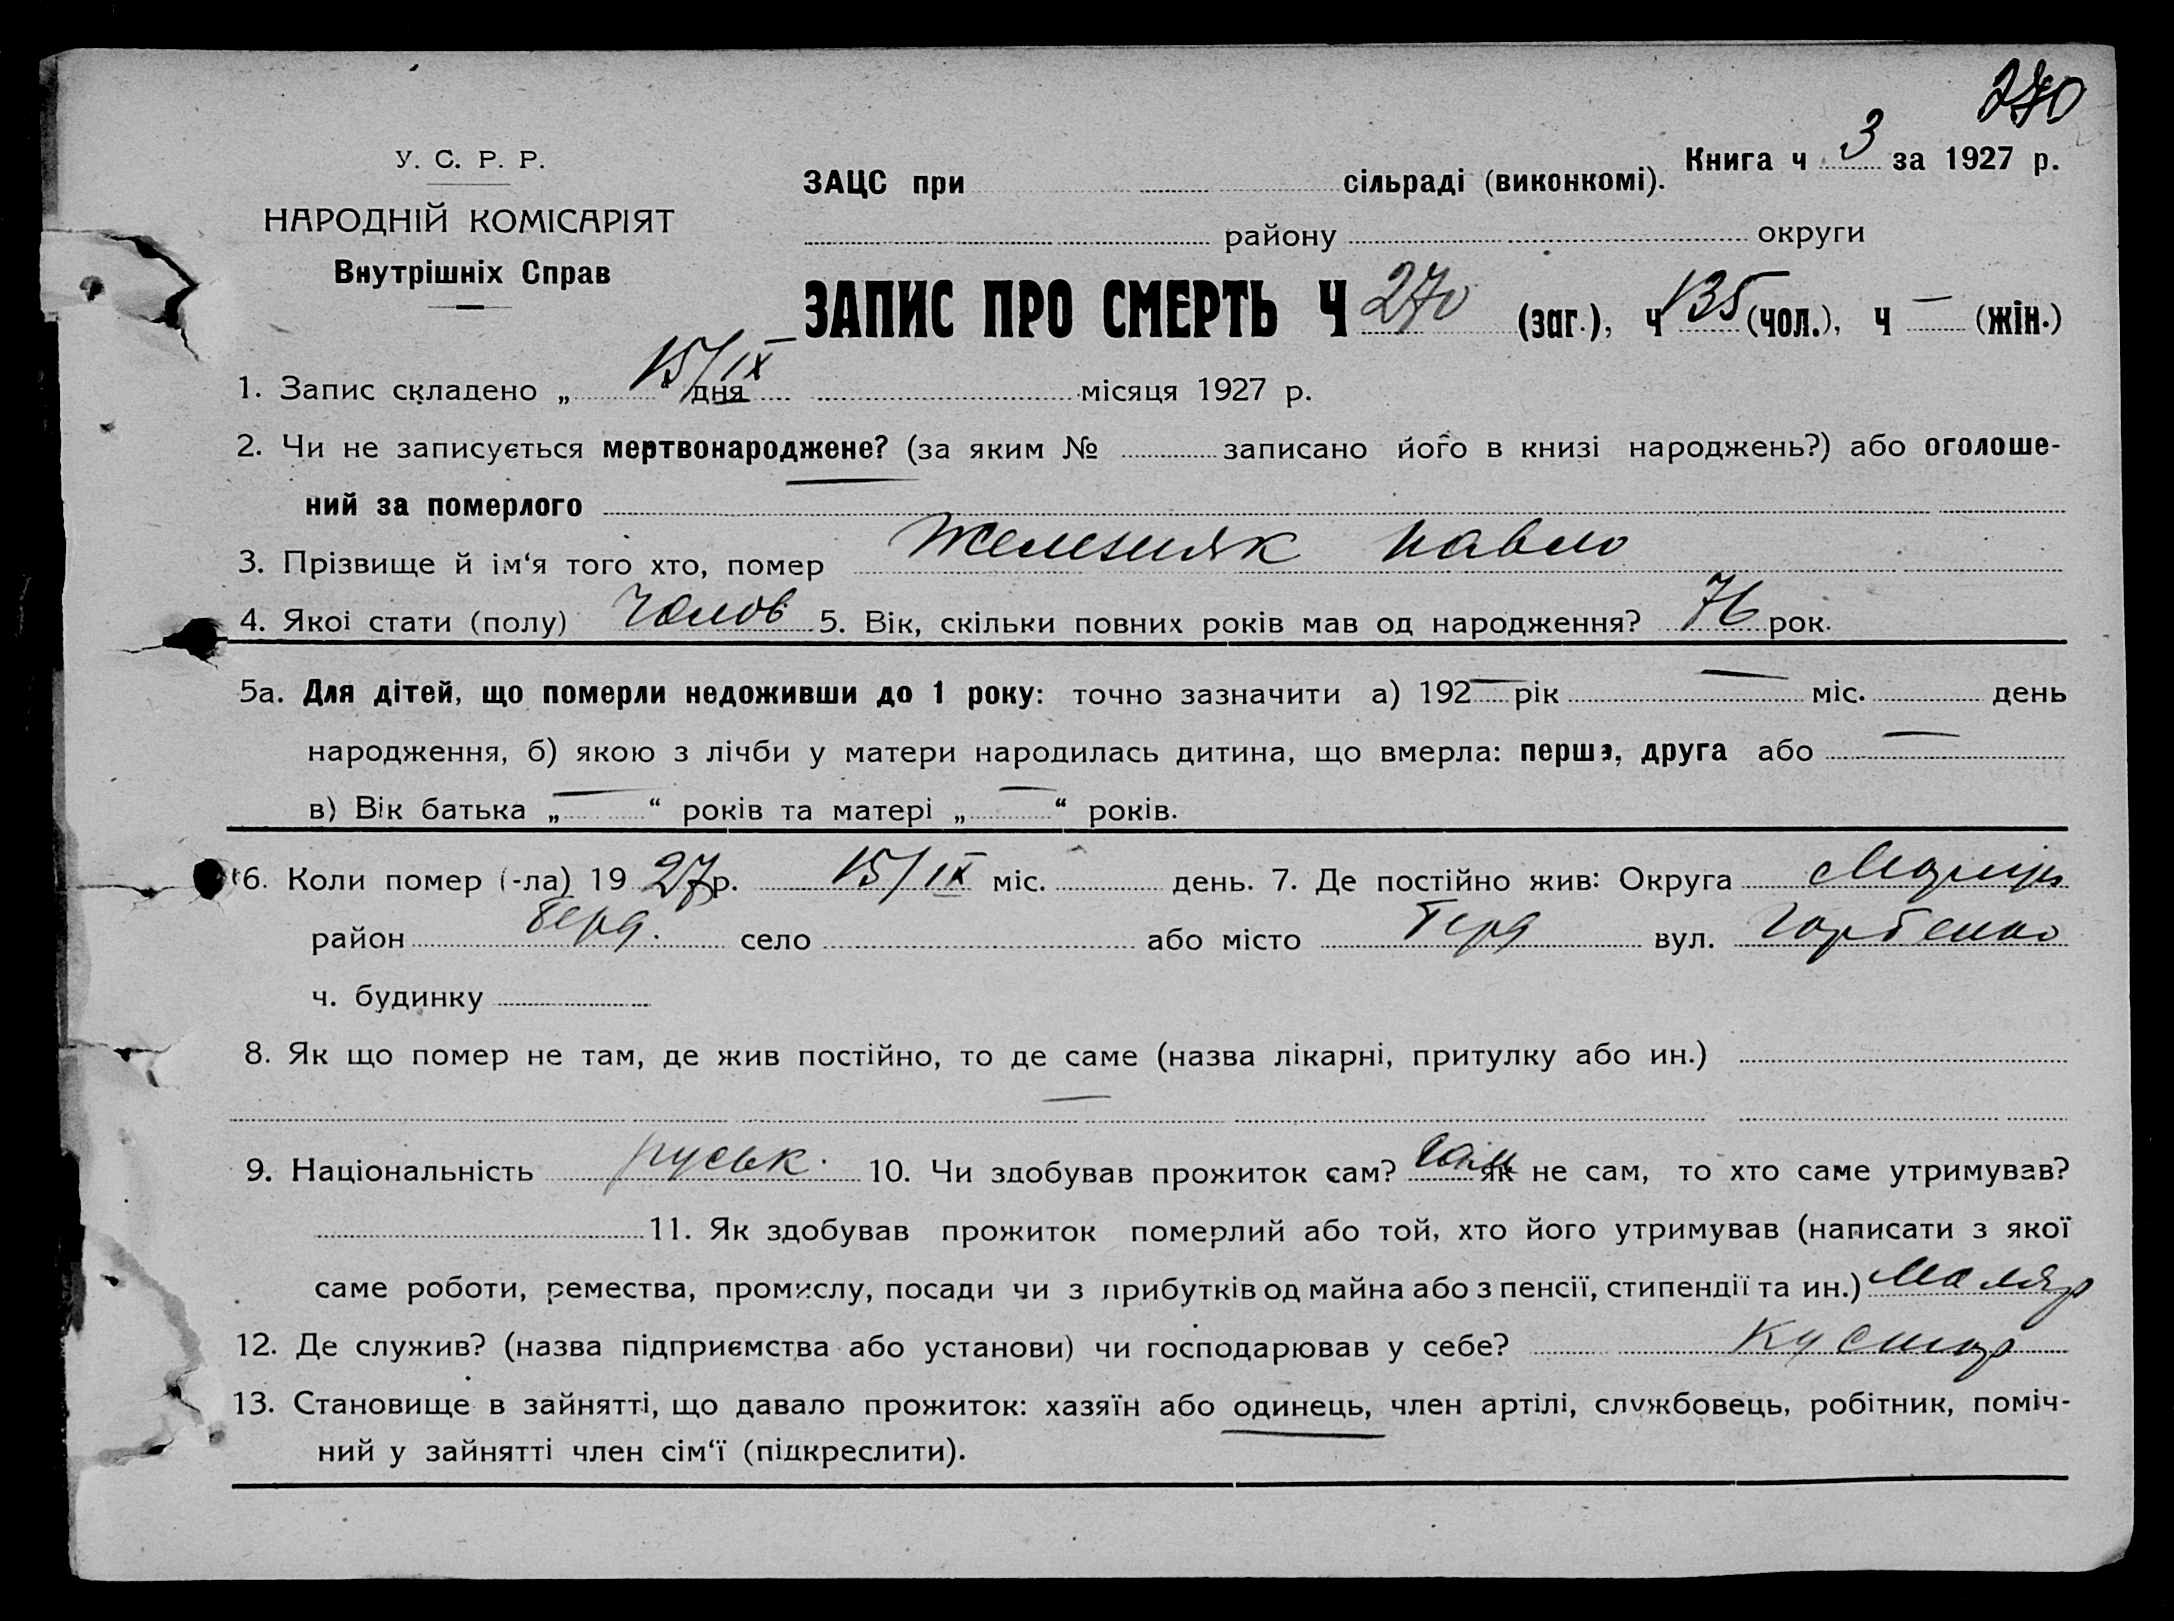 270
У. С. Р. Р.
Книга ч 3 за 1927 р.
ЗАЦС при сільраді (виконкомі).
НАРОДНІЙ КОМІСАРІЯТ
району округи
Внутрішніх Справ
ЗАПИС ПРО СМЕРТЬ Ч 270 (заг.), ч 135 (чол.), ч — (жін.)
1. Запис складено „ 15/IX " дня місяця 1927 р.
2. Чи не записується мертвонароджене? (за яким № записано його в книзі народжень?) або оголоше-
ний за померлого
3. Прізвище й ім‘я того хто, помер Железняк Павло
4. Якої стати (полу) Чолов. 5. Вік, скільки повних років мав од народження? 76 рок.
5а. Для дітей, що померли недоживши до 1 року: точно зазначити а) 192— рік — міс. день
народження, б) якою з лічби у матери народилась дитина, що вмерла: перша, друга або —
в) Вік батька „ — “ років та матері „ — “ років.
6. Коли помер (-ла) 19 27 р. 15/IX міс. день. 7. Де постійно жив: Округа Маріуп
район Берд. село або місто Берд вул. Горбенко
ч. будинку
8. Як що помер не там, де жив постійно, то де саме (назва лікарні, притулку або ин.)
—
9. Національність руськ. 10. Чи здобував прожиток сам? сам як не сам, то хто саме утримував?
11. Як здобував прожиток померлий або той, хто його утримував (написати з якої
саме роботи, ремества, промислу, посади чи з прибутків од майна або з пенсії, стипендії та ин.) Маляр
12. Де служив? (назва підприємства або установи) чи господарював у себе? Кустар
13. Становище в зайнятті, що давало прожиток: хазяїн або одинець, член артілі, службовець, робітник, поміч-
ний у зайнятті член сім‘ї (підкреслити).